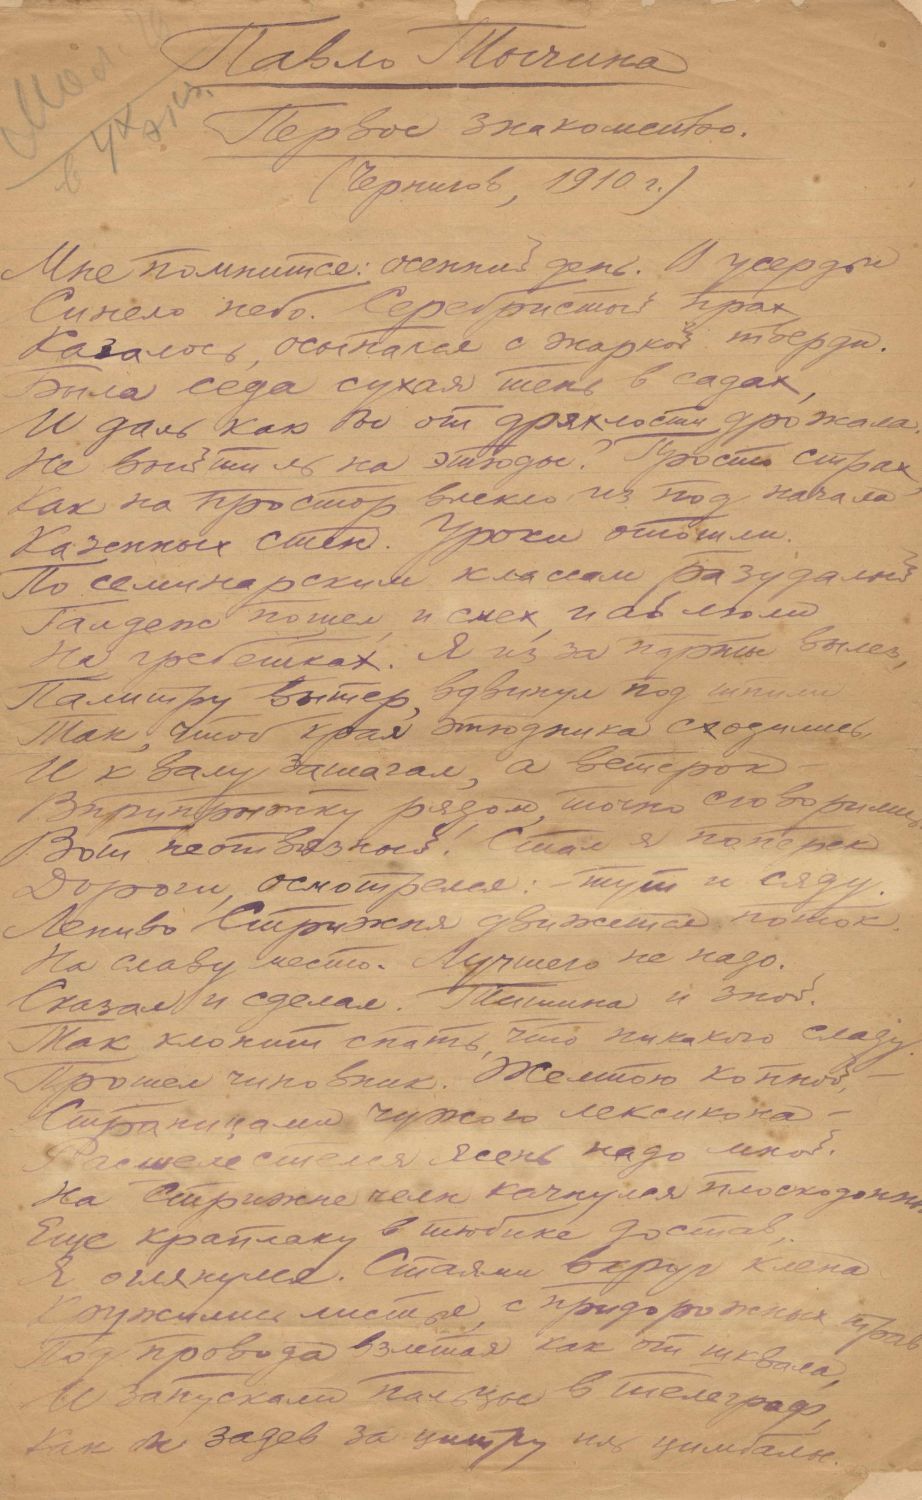 Павло Тычина
Первое знакомство.
(Чернигов, 1910 г.)
Мне помнится: осенний день. И усердьи
Синело небо. Серебристый прах,
Казалось, осыпался с жаркой тверди.
Была седа сухая тень в садах,
И даль как бы от дряхлости дрожала.
Не выйти ль на этюды? Просто страх,
Как на простор влекло из под начала
Казенных стен. Уроки отошли.
По семинарским классам разудалый
Галдеж пошел, и смех, и ай люли
На гребешках. Я из за парты вылез,
Палитру вытер, вдвинул под шпили
Так, чтоб края этюдника сходились,
И к валу зашагал, а ветерок –
Вприпрыжку рядом, точно сговорились
Вот неотвязный! Стал я поперек
Дороги, осмотрелся: – тут и сяду.
Лениво Стрижня движется поток.
На славу место. Лучшего не надо.
Сказал и сделал. Тишина и зной.
Так клонит спать, что никакого сладу.
Прошел чиновник. Желтою копной, –
Страницами чужого лексикона –
Расшелестелся ясень надо мной.
На Стрижне челн качнулся плоскодонный
Еще краплаку в тюбике достав,
Я оглянулся. Стаями вкруг клена
Кружились листья, с придорожных трав
Под провода взлетая как от шквала,
И запускали пальцы в телеграф,
Как задев за цитру иль цимбалы.